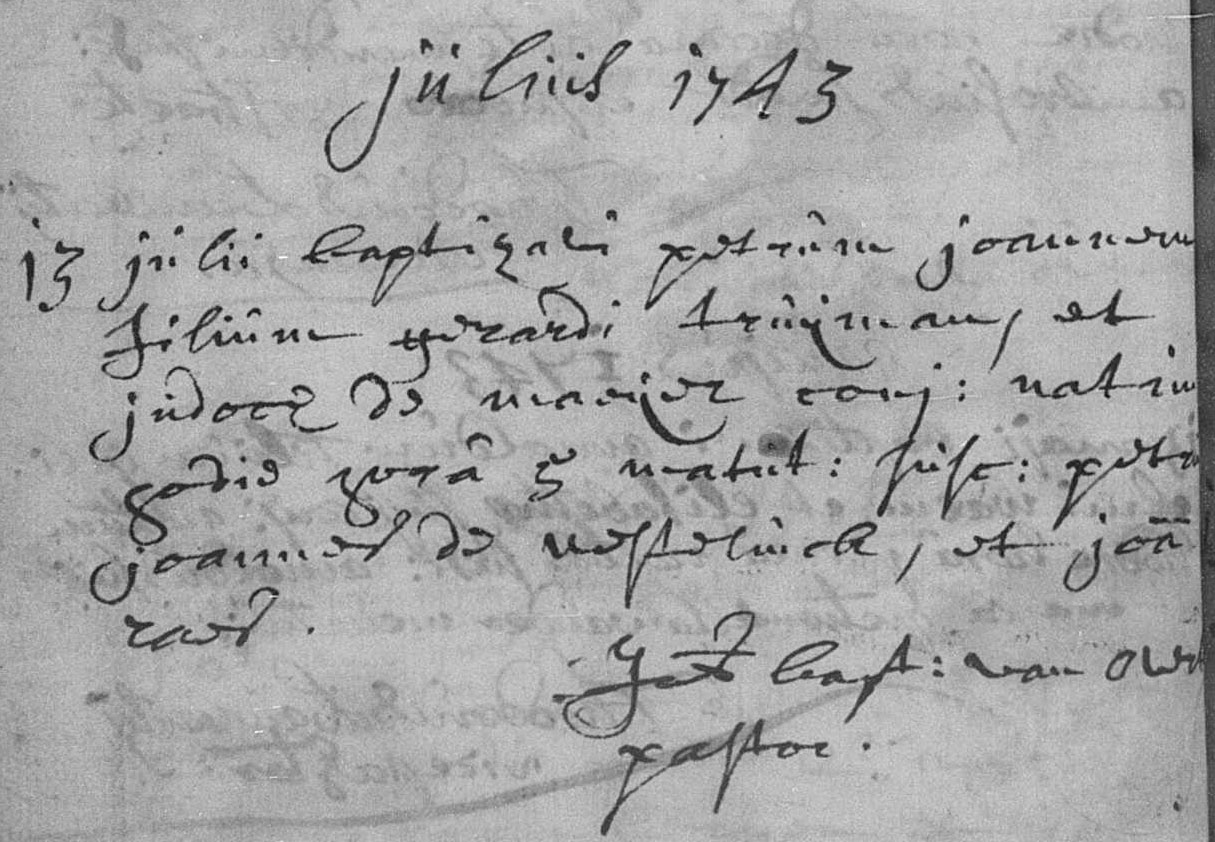 julius 1743
13 julii baptizavi petrum joannem
filium gerardi truijman, et
judocæ de maeijer conj: natum
hodie hora 5 matut: susc: petrus
joannes de vestelinck, et joãa
raes.
Joes bapt: van
pastor.